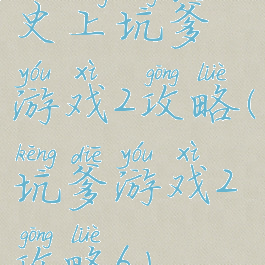 史上坑爹
yóu xì gōng lüè
游戏2攻略(
kēng diē yóu xì
坑爹游戏2
gōng lüè
攻略6)